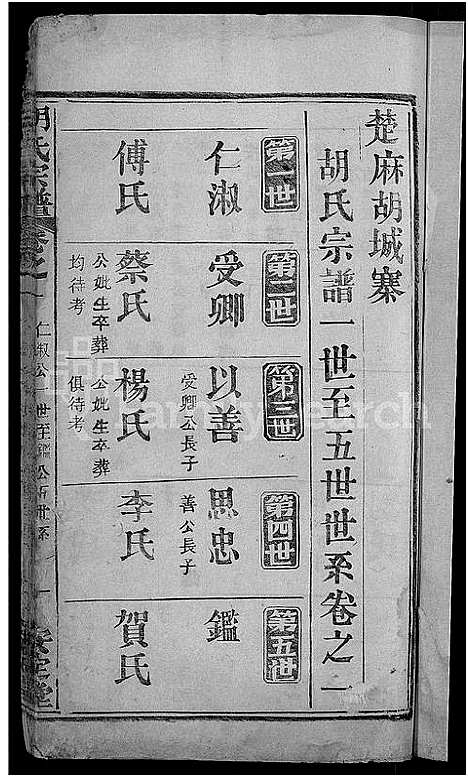 楚麻胡城寨
胡氏宗譜一世至五世世系卷之一
第一世
仁淑
傅氏
第二世
受卿
蔡氏
公妣生卒葬
均待考
第三世
以善
受卿公長子
楊氏
公妣生卒葬
俱待考
第四世
思忠
善公長子
李氏
第五世
鑑
賀氏
胡氏宗譜
卷之一
仁淑公一世至鑑公五世系
一
安定堂
FamilySearch